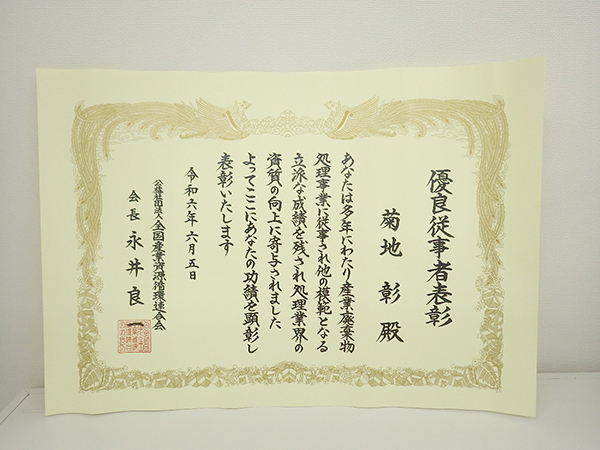 優良従事者表彰
菊地彰殿
あなたは多年にわたり産業廃棄物
処理事業に従事され他の模範となる
立派な成績を残され処理業界の
資質の向上に寄与されました
よってここにあなたの功績を顕彰し
表彰いたします
令和六年六月五日
公益社団法人全国産業資源循環連合会
会長永井良一